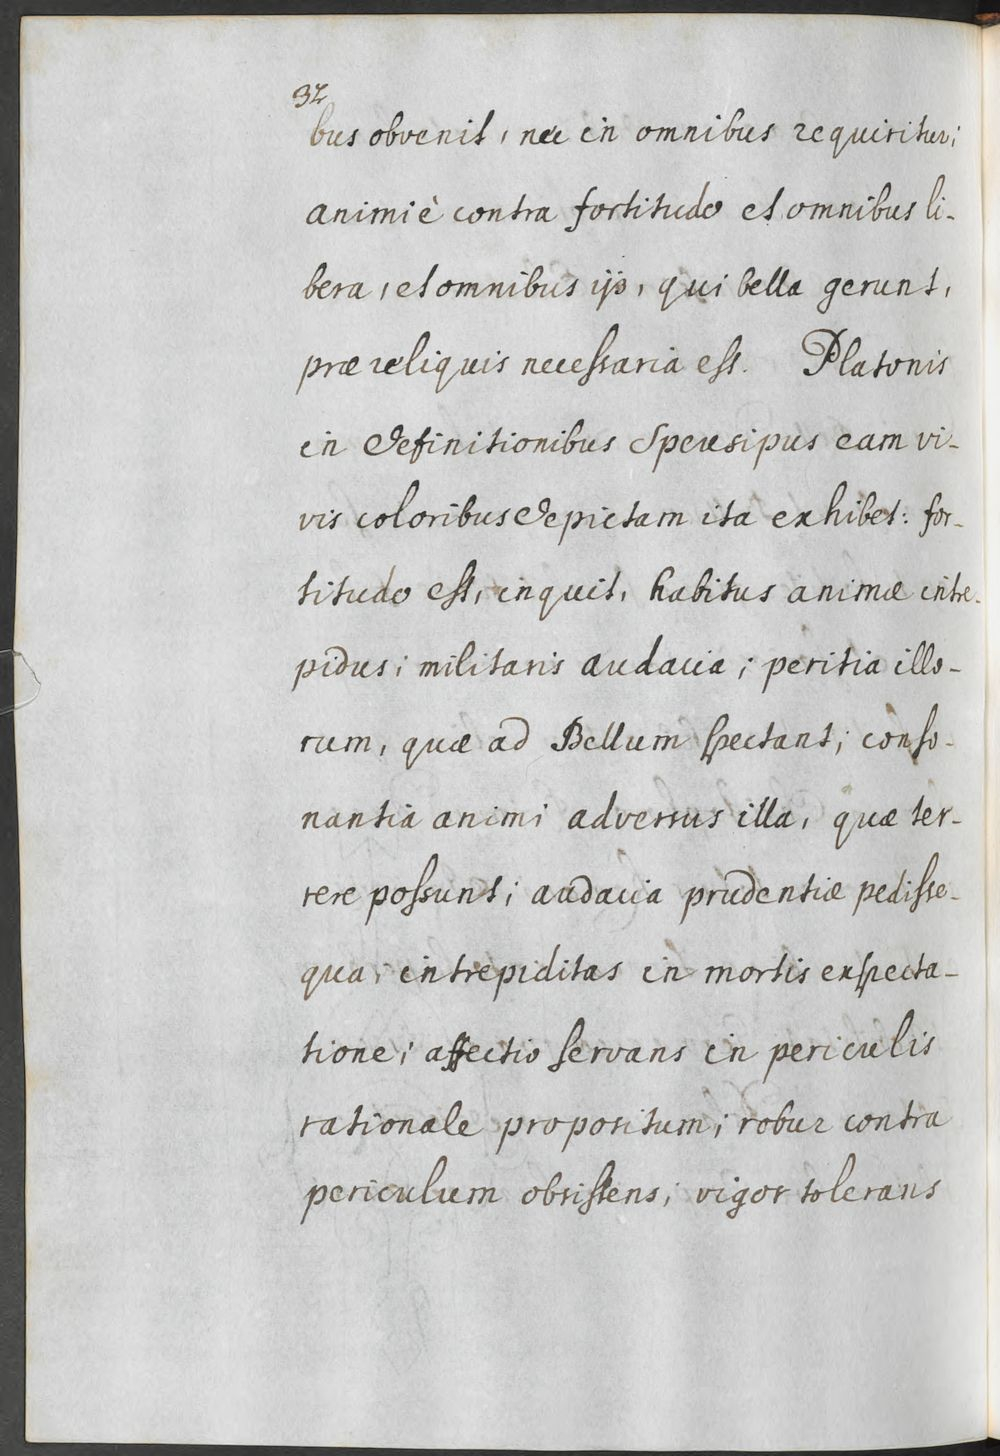 32
bus obvenit, nec in omnibus requiritur;
animi è contra fortitudo et omnibus li-
bera, et omnibus ijs, qui bella gerunt,
præ reliquis necessaria est. Platonis
in definitionibus Speusipus eam vi-
vis coloribus depictam ita exhibet: for-
titudo est, inquit, habitus animæ intre-
pidus; militaris audacia; peritia illo-
rum, quæ ad Bellum spectant; conso-
nantia animi adversus illa, quæ ter-
rere possunt; audacia prudentiæ pedisse-
qua; intrepiditas in mortis expecta-
tione; affectio servans in periculis
rationale propositum; robur contra
periculum obsistens; vigor tolerans